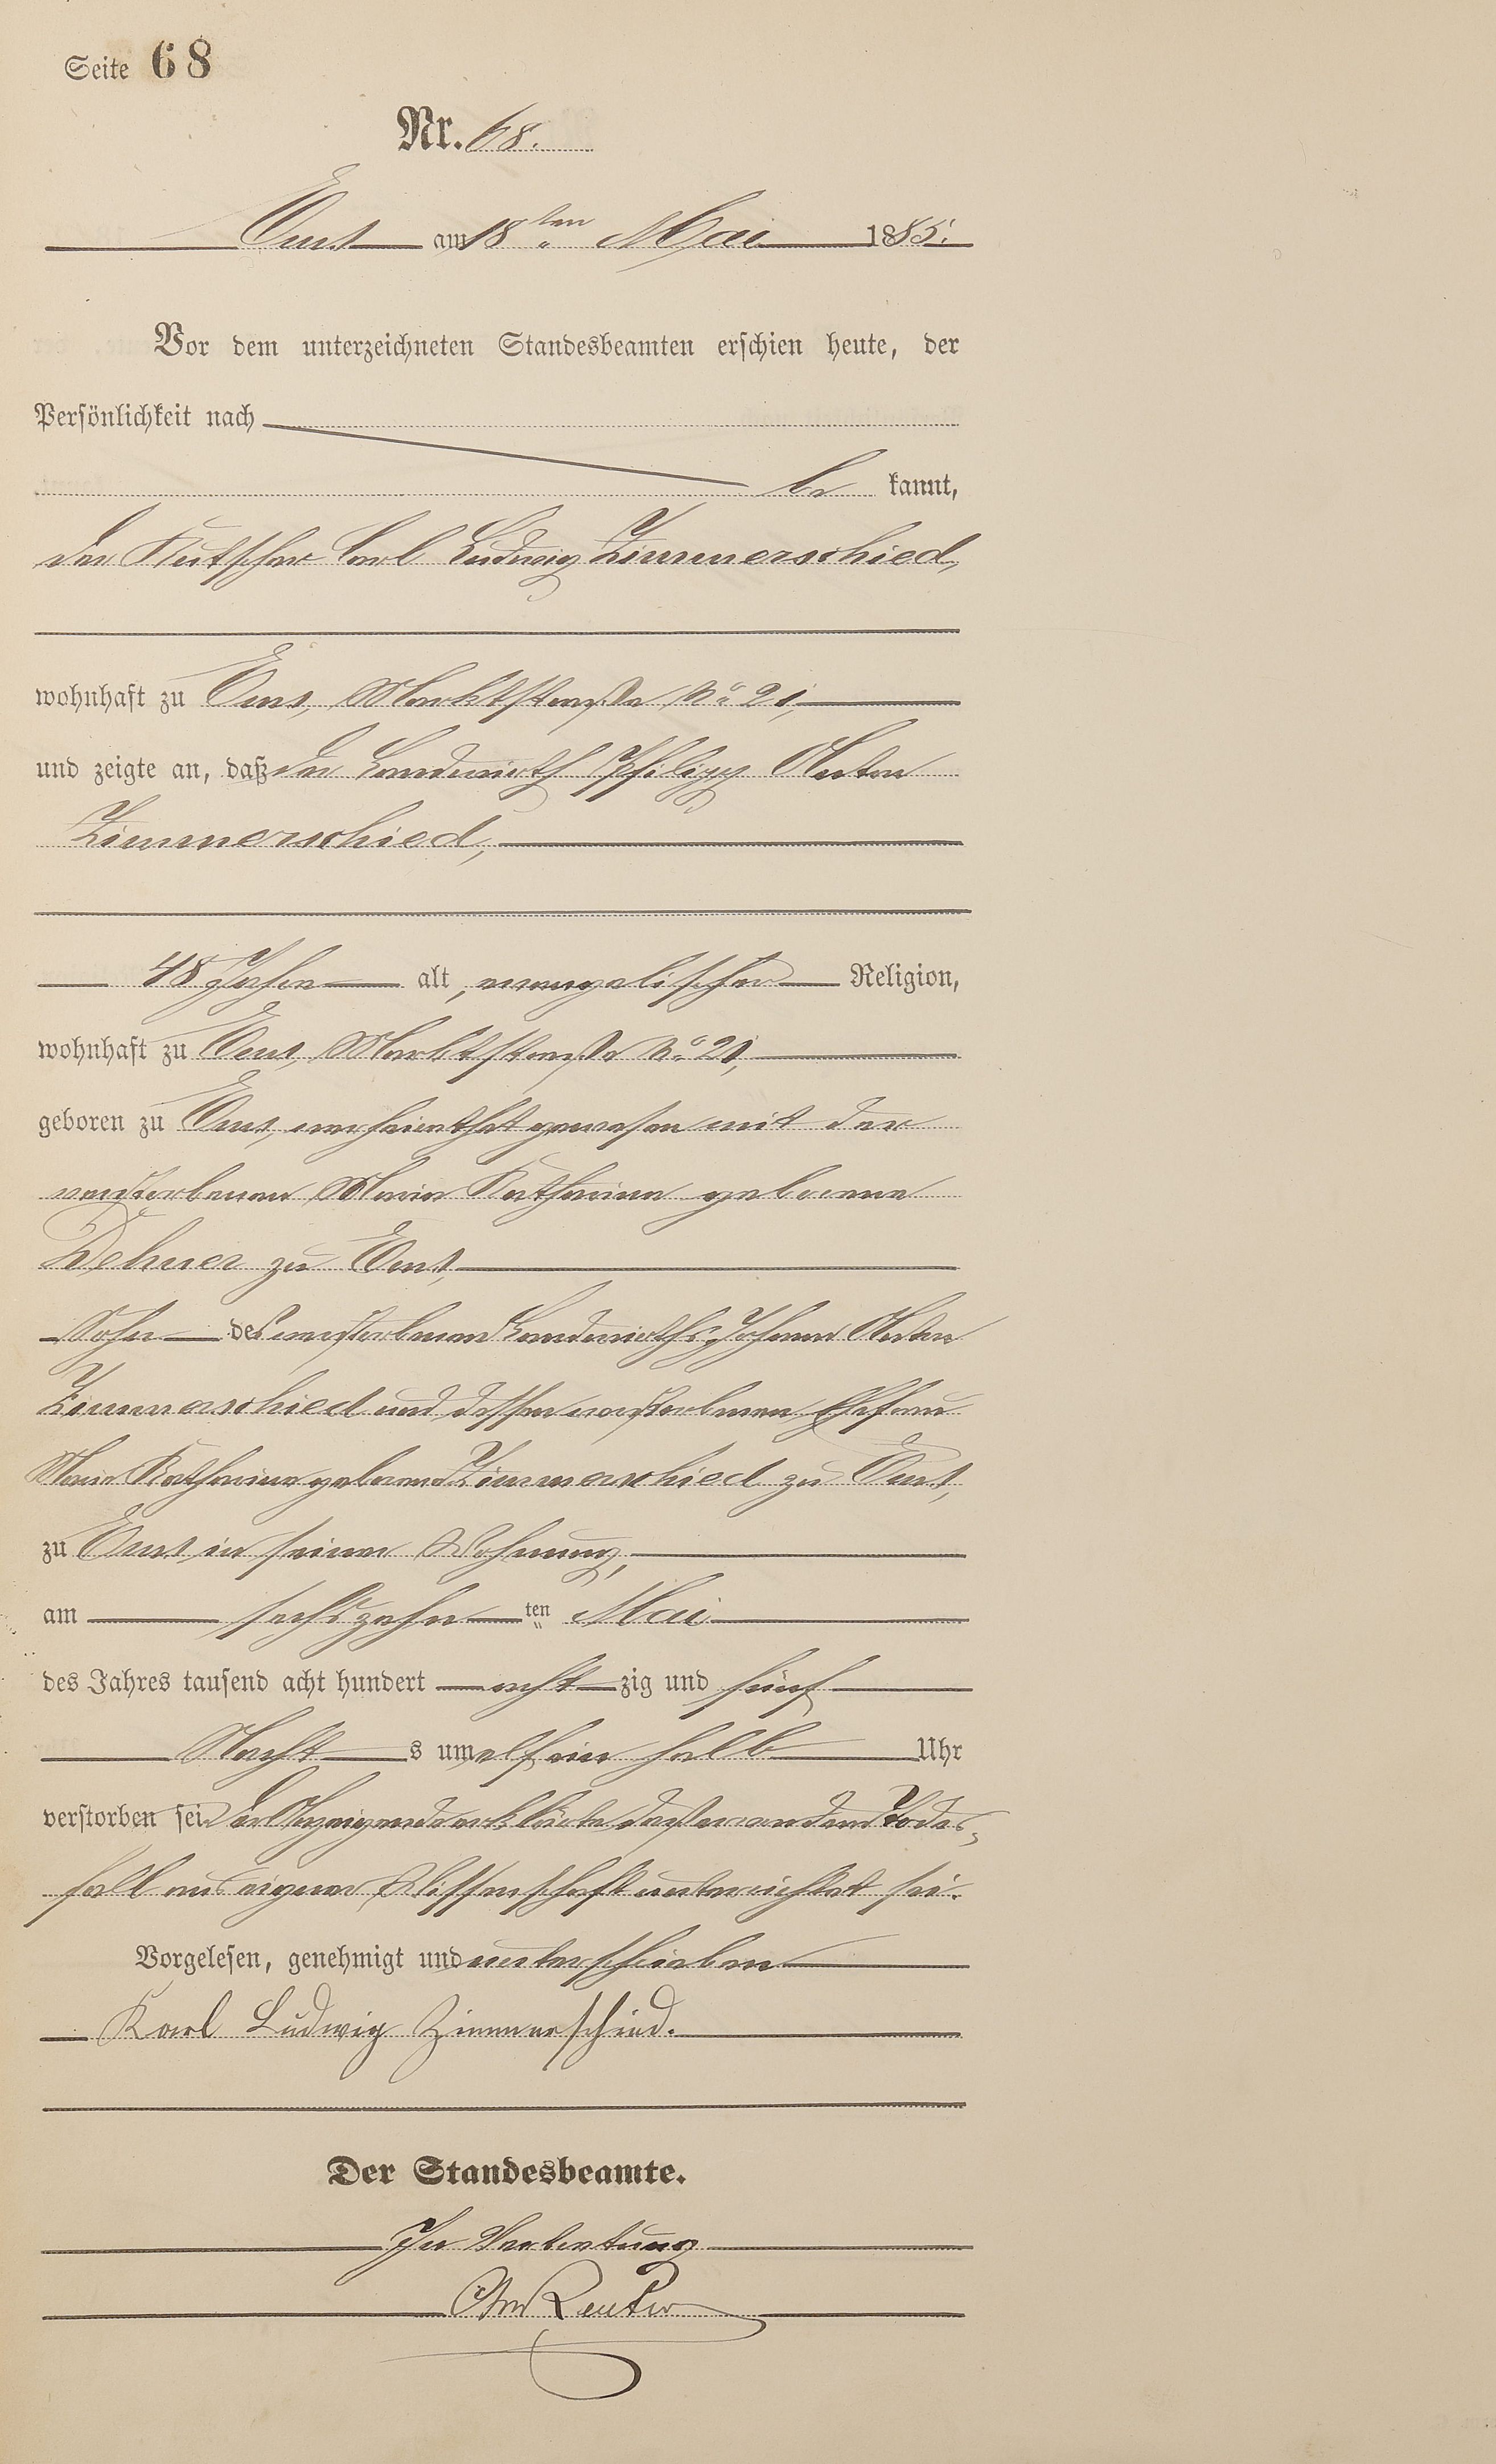 Seite 68
Nr. 68.
Ems am 18ten Mai 1885.
Vor dem unterzeichneten Standesbeamten erschien heute, der
Persönlichkeit nach
be kannt,
der Kutscher Carl Ludwig Zimmerschied,
wohnhaft zu Ems, Marktstraße No 21,
und zeigte an, daß der Landwirth Philipp Anton
Zimmerschied,
48 Jahre alt, evangelischer Religion,
wohnhaft zu Ems, Marktstraße No 21,
geboren zu Ems, verheirathet gewesen mit der
verstorbenen Maria Katharina geborene
Dehner zu Ems,
Sohn des verstorbenen Landwirths Johann Anton
Zimmerschied und dessen verstorbenen Ehefrau
Maria Katharina geborene Zimmerschied zu Ems,
zu Ems in seiner Wohnung,
am sechszehn ten Mai
des Jahres tausend acht hundert acht zig und fünf
Nacht s um elf ein halb Uhr
verstorben sei. Der Anzeigende erklärte daß er von dem Todes-
fall aus eigner Wissenschaft unterrichtet sei.
Vorgelesen, genehmigt und unterschrieben
Karl Ludwig Zimmerschied.
Der Standesbeamte.
In Vertretung
Reuter